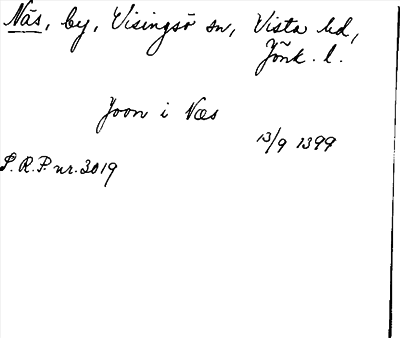 Näs, by, Visingsö sn, Vista hd,
Jönk. l.
Joon i Næs
13/9 1399
S.R.P. nr. 3019